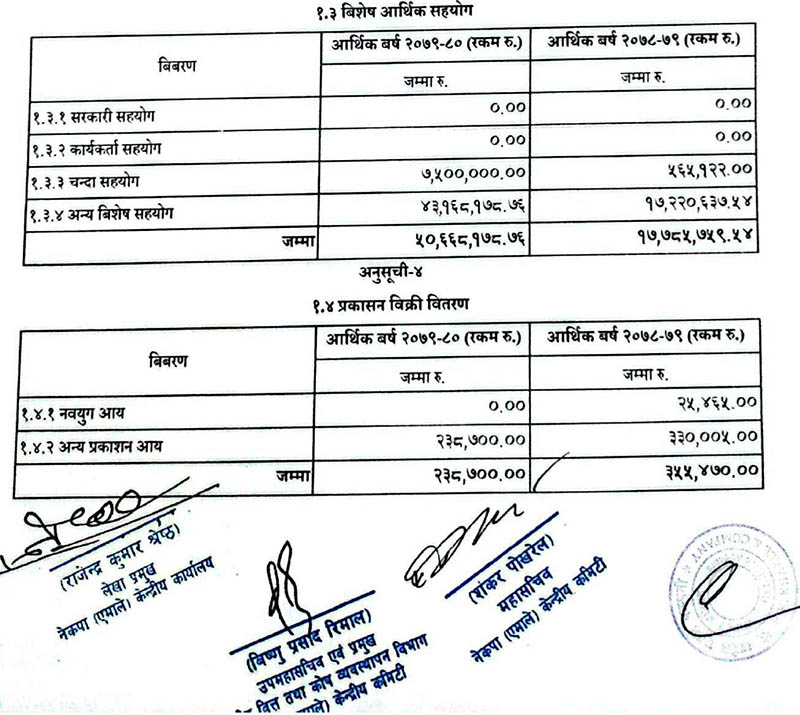 १.३ बिशेष आर्थिक सहयोग
बिबरण आर्थिक बर्ष २०७९-८० (रकम रु.) आर्थिक बर्ष २०७८-७९ (रकम रु.)
जम्मा रु. जम्मा रु.
१.३.१ सरकारी सहयोग ०.०० ०.००
१.३.२ कार्यकर्ता सहयोग ०.०० ०.००
१.३.३ चन्दा सहयोग ७,५००,०००.०० ५६५,१२२.००
१.३.४ अन्य बिशेष सहयोग ४३,१६८,१७८.७६ १७,२२०,६३७.५४
जम्मा ५०,६६८,१७८.७६ १७,७८५,७५९.५४
अनुसूची-४
१.४ प्रकासन विक्री वितरण
बिबरण आर्थिक बर्ष २०७९-८० (रकम रु.) आर्थिक बर्ष २०७८-७९ (रकम रु.)
जम्मा रु. जम्मा रु.
१.४.१ नवयुग आय ०.०० २५,४६५.००
१.४.२ अन्य प्रकाशन आय २३८,७००.०० ३३०,००५.००
जम्मा २३८,७००.०० ३५५,४७०.००
(राजेन्द्र कुमार श्रेष्ठ)
लेखा प्रमुख
नेकपा (एमाले) केन्द्रीय कार्यालय
(विष्णु प्रसाद रिमाल)
उपमहासचिव एवं प्रमुख
वित्त तथा कोष व्यवस्थापन विभाग
(एमाले) केन्द्रीय कमिटी
(शंकर पोखरेल)
महासचिव
नेकपा (एमाले) केन्द्रीय कमिटी